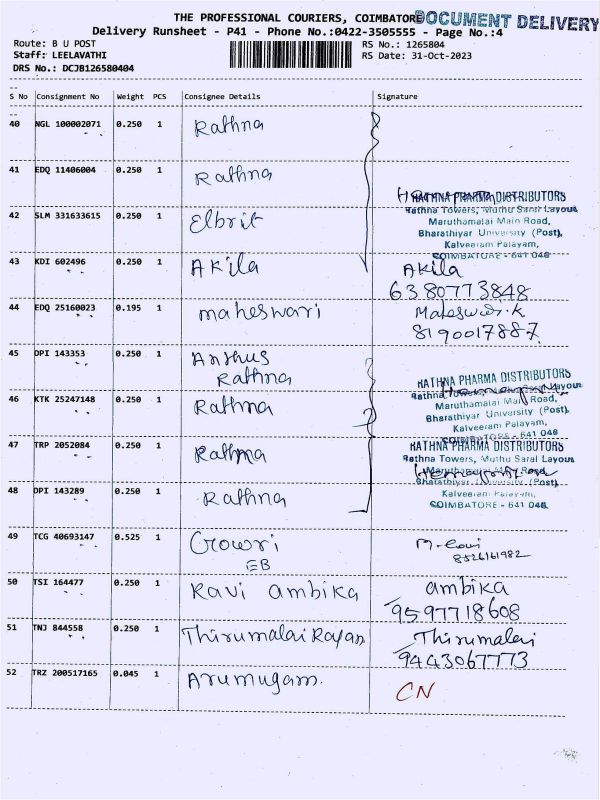 THE PROFESSIONAL COURIERS, COIMBATORE
DOCUMENT DELIVERY
Delivery Runsheet - P41 - Phone No.:0422-3505555 - Page No.:4
Route: B U POST
RS No.: 1265804
Staff: LEELAVATHI
RS Date: 31-Oct-2023
DRS No.: DCJB126580404
S No Consignment No Weight PCS Consignee Details Signature
40 NGL 100002071 0.250 1 Rathna
41 EDQ 11406004 0.250 1 Rathna
RATHNA PHARMA DISTRIBUTORS
Rathna Towers, Muthu Saral Layout
42 SLM 331633615 0.250 1 Elbrit
Maruthamalai Main Road,
Bharathiyar University (Post),
Kalveeram Palayam,
COIMBATORE - 641 046
43 KDI 602496 0.250 1 Akila Akila
6380773848
44 EDQ 25160023 0.195 1 maheswari Maheswari.K
8190017887
45 DPI 143353 0.250 1 Anthus
Rathna
RATHNA PHARMA DISTRIBUTORS
Rathna Layout
46 KTK 25247148 0.250 1 Rathna
Maruthamalai Main Road,
Bharathiyar University (Post),
Kalveeram Palayam,
COIMBATORE - 641 046
47 TRP 2052084 0.250 1 Rathna
RATHNA PHARMA DISTRIBUTORS
Rathna Towers, Muthu Saral Layout
Maruthamalai Main Road,
Bharathiyar University (Post),
48 DPI 143289 0.250 1 Rathna
Kalveeram Palayam,
COIMBATORE - 641 046
49 TCG 40693147 0.525 1 Gowri
EB
8526161982
50 TSI 164477 0.250 1 Ravi ambika ambika
9597718608
51 TNJ 844558 0.250 1 Thirumalai Rajan Thirumalai
9443067773
52 TRZ 200517165 0.045 1 Arumugam. CN